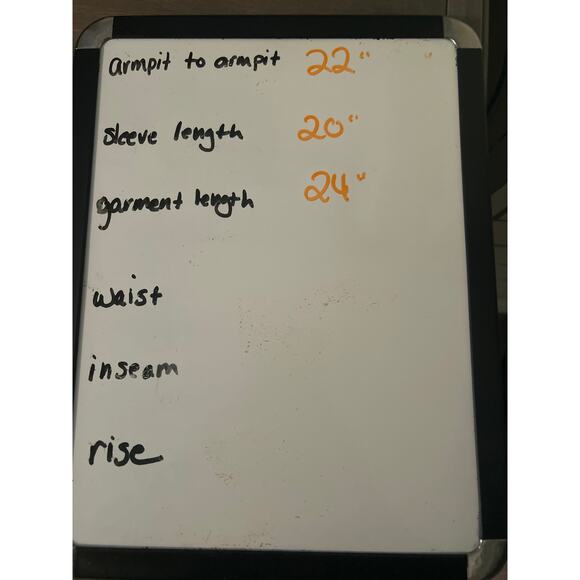 armpit to armpit 22"
sleeve length 20"
garment length 24"
waist
inseam
rise